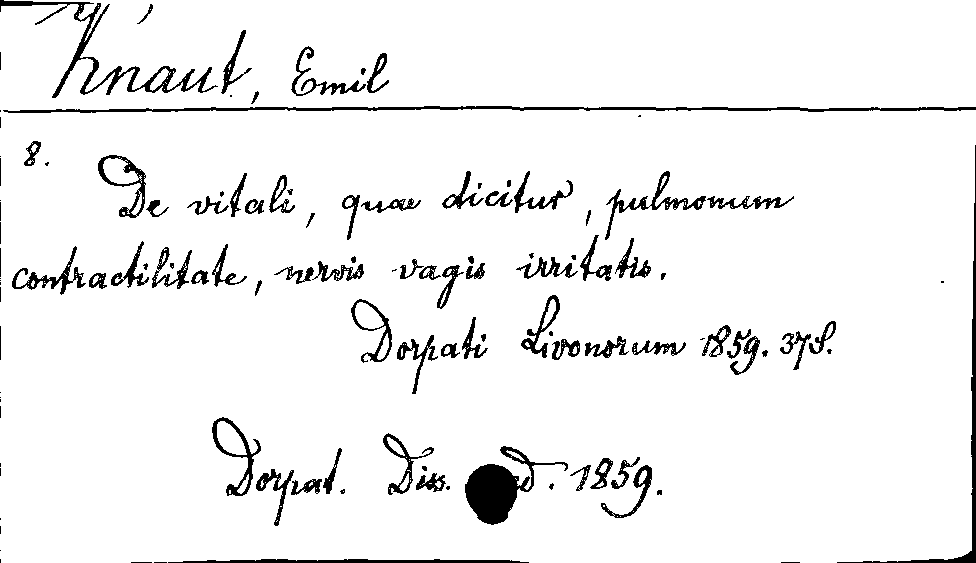 Knaut, Emil
8.
De vitali, quae dicitur, pulmonum
contractilitate, nervis vagis irritatis.
Dorpati Livonorum 1859. 37 S.
Dorpat. Diss. 1859.